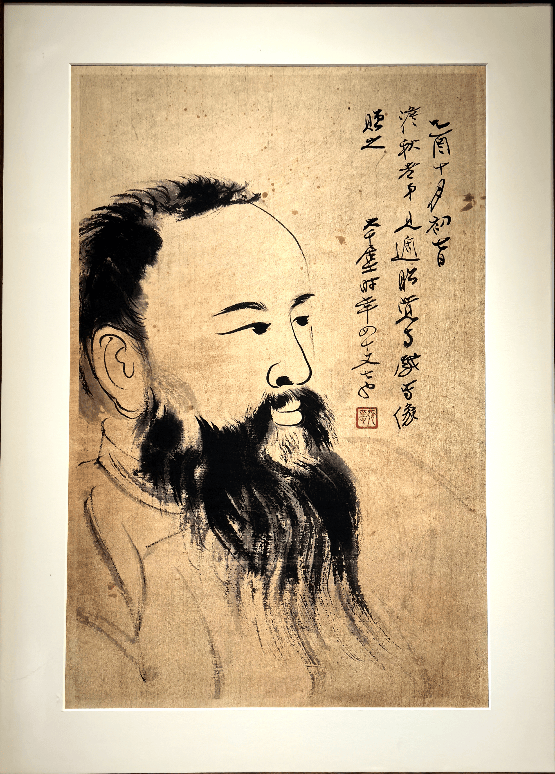 乙酉十月初三日
澹秋老弟見過昭覺寺戲寫像
贈之
大千爰時年四十又七也